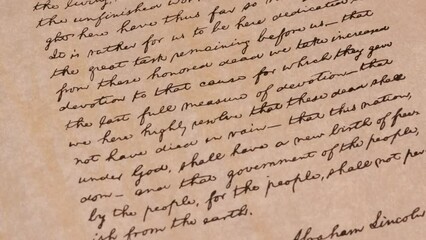 the living,
the unfinished wor
ght here have thus far so n
It is rather for us to be here dedicated
the great task remaining before us— that
from these honored dead we take increased
devotion to that cause for which they gave
the last full measure of devotion— that
we here highly resolve that these dead shall
not have died in vain— that this nation,
under God, shall have a new birth of free-
dom— and that government of the people,
by the people, for the people, shall not per
ish from the earth.
Abraham Lincoln